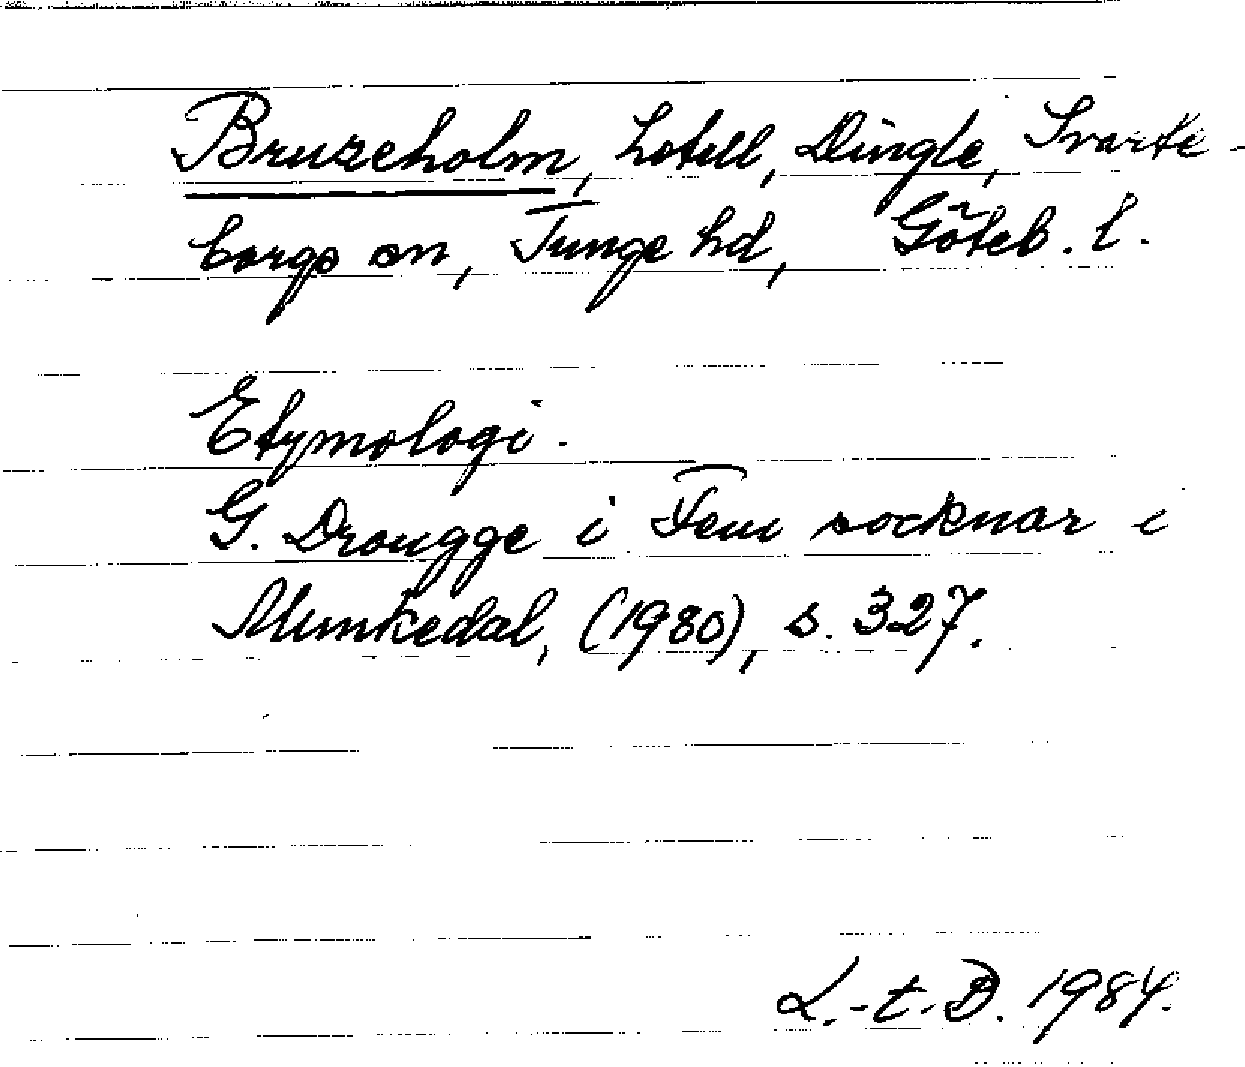 Bruzeholm, hotell, Dingle, Svarte-
borgs sn, Tunge hd, Göteb. l.
Etymologi.
G. Drougge i Fem socknar i
Munkedal, (1980), s. 327.
L.-t.D. 1984.